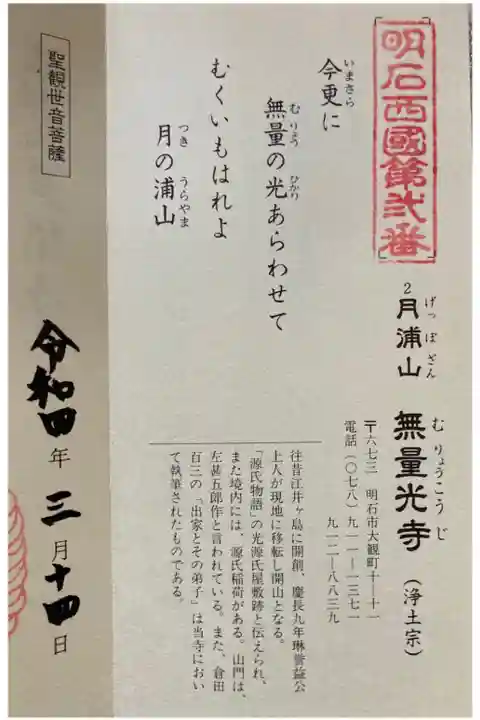 明石西國第弐番
2 月浦山 無量光寺 (浄土宗)
げっぽざん むりょうこうじ
〒六七三 明石市大観町十―十一
電話(〇七八)九一一―一三七一
九一二―八八三九
今更に
いまさら
無量の光あらわせて
むりょう ひかり
むくいもはれよ
月の浦山
つき うらやま
往昔江井ヶ島に開創、慶長九年琳誉益公
上人が現地に移転し開山となる。
「源氏物語」の光源氏屋敷跡と伝えられ、
また境内には、源氏稲荷がある。山門は、
左甚五郎作と言われている。また、倉田
百三の「出家とその弟子」は当寺におい
て執筆されたものである。
聖観世音菩薩
令和四年 三月十四日